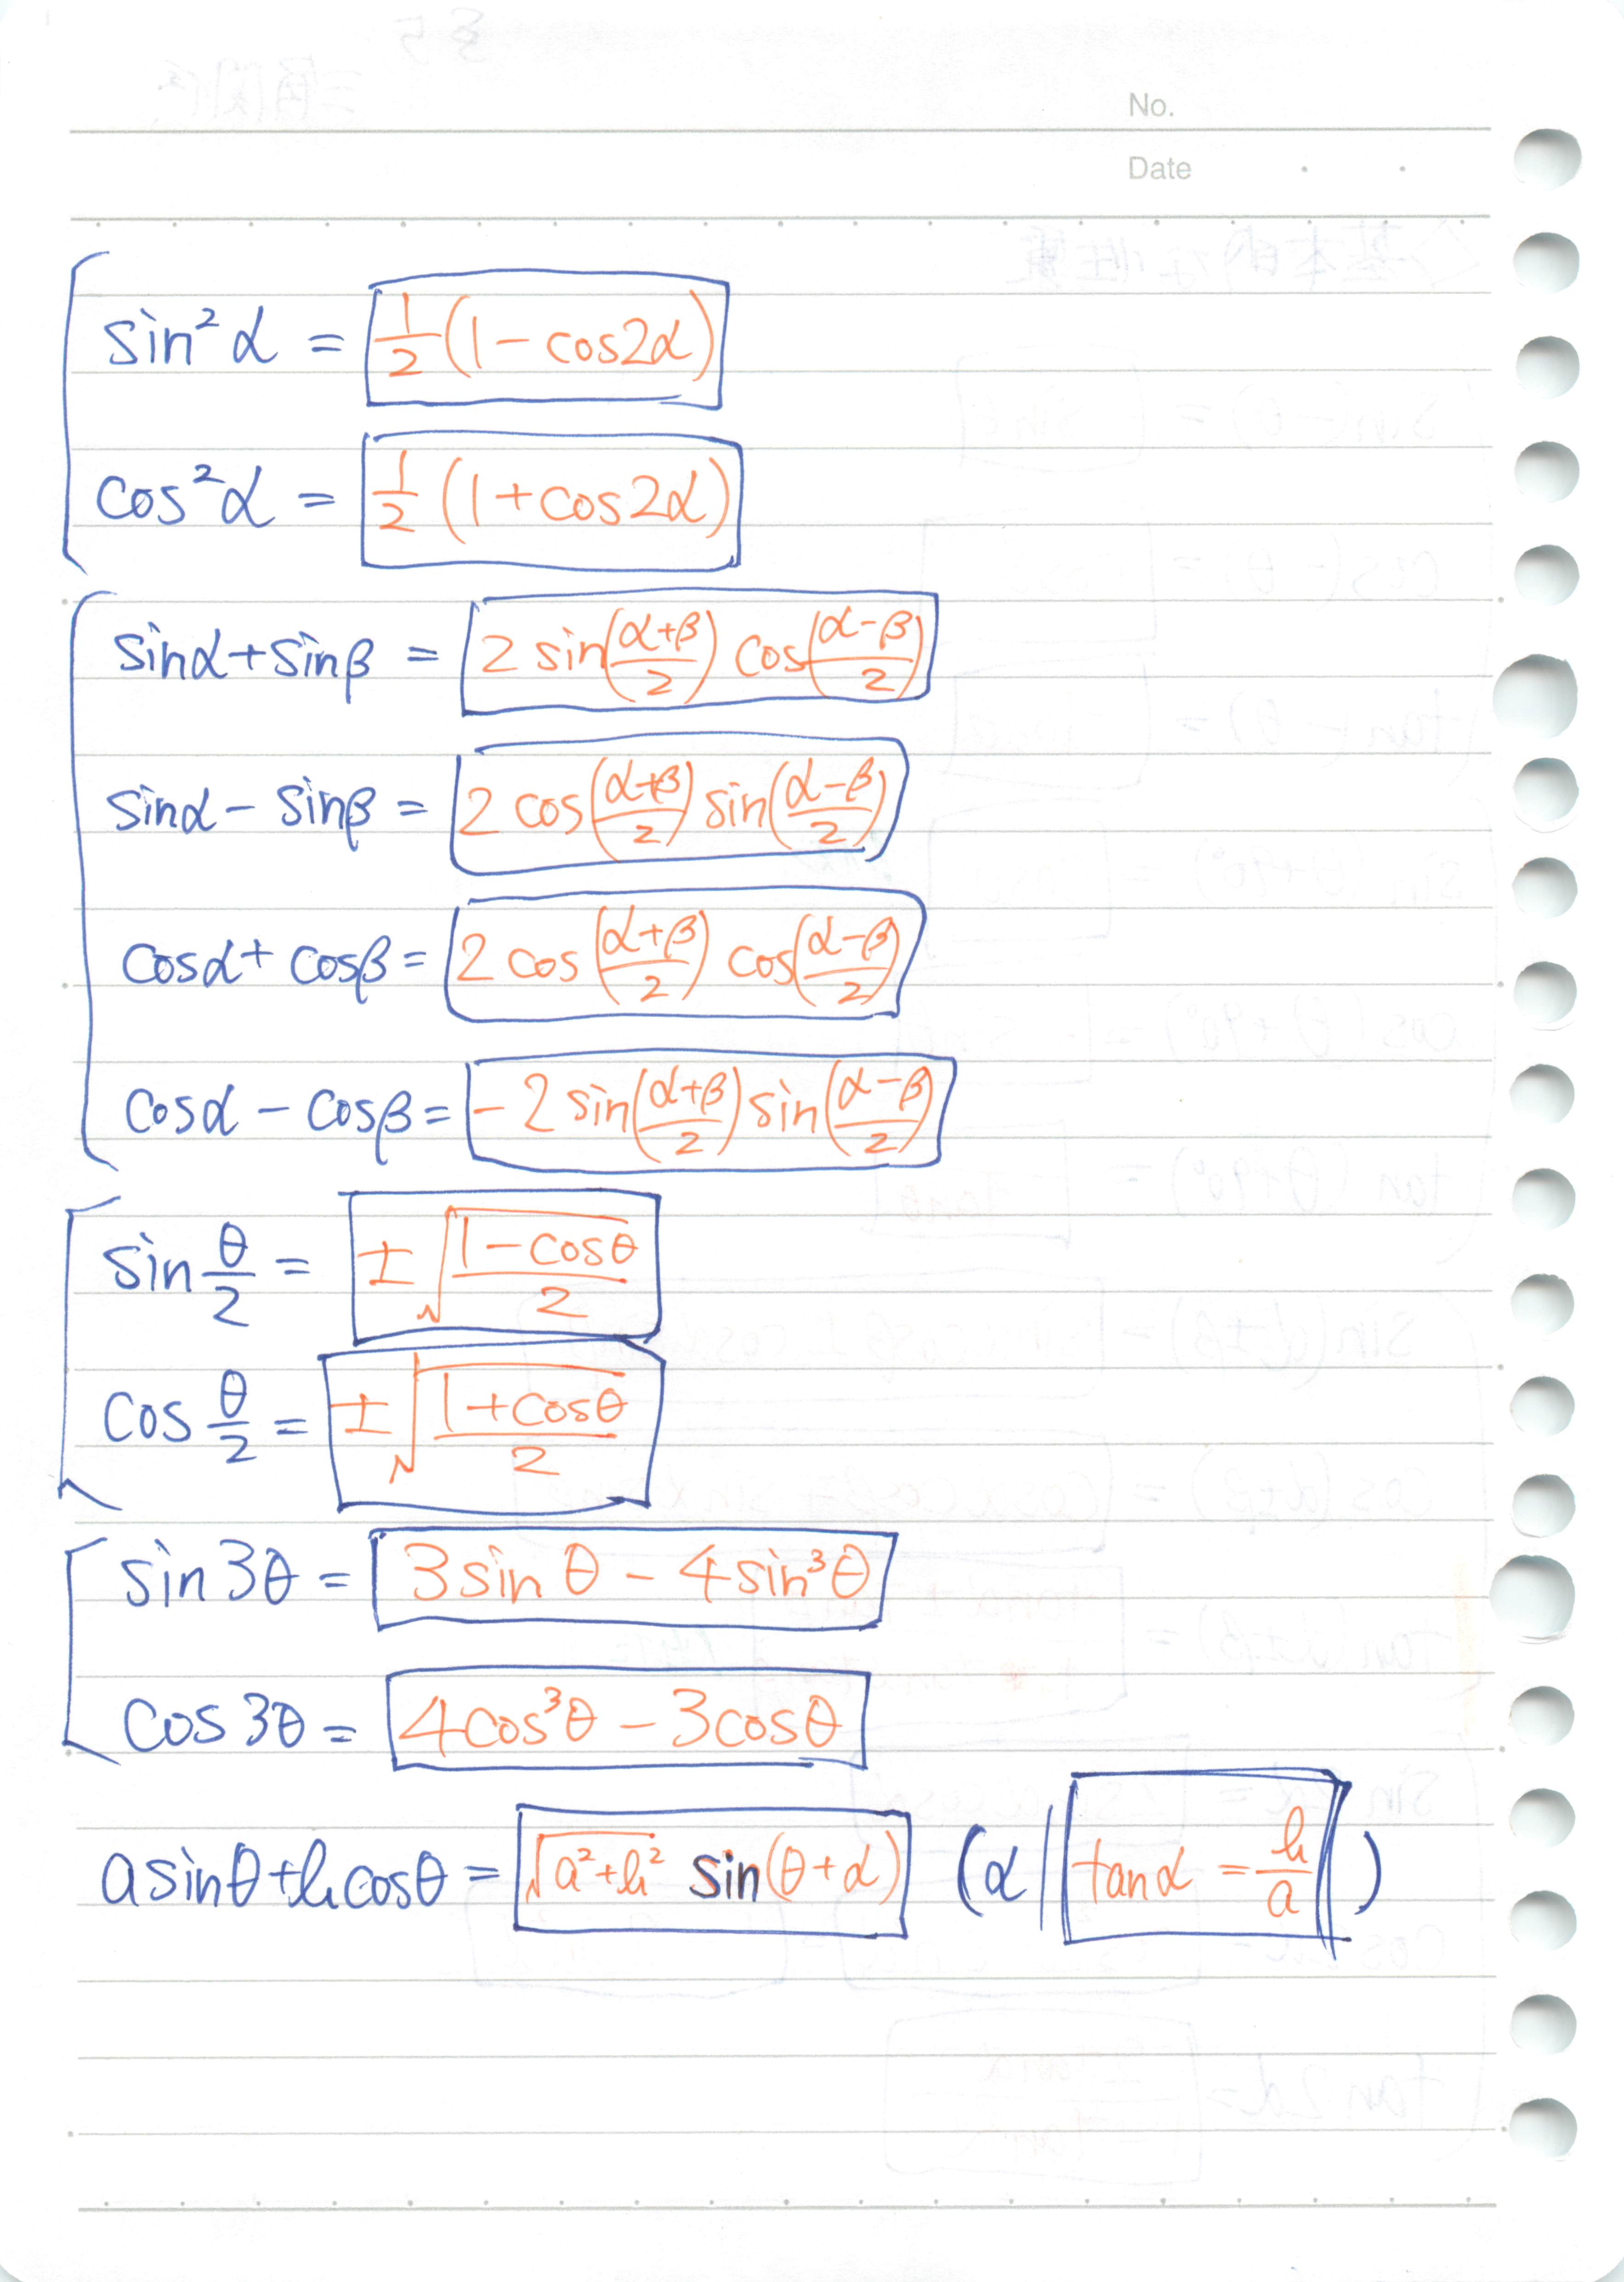 No.
Date
sin²α = 1/2 (1 - cos2α)
cos²α = 1/2 (1 + cos2α)
sinα + sinβ = 2 sin((α+β)/2) cos((α-β)/2)
sinα - sinβ = 2 cos((α+β)/2) sin((α-β)/2)
cosα + cosβ = 2 cos((α+β)/2) cos((α-β)/2)
cosα - cosβ = -2 sin((α+β)/2) sin((α-β)/2)
sin θ/2 = ±√((1-cosθ)/2)
cos θ/2 = ±√((1+cosθ)/2)
sin3θ = 3sinθ - 4sin³θ
cos3θ = 4cos³θ - 3cosθ
a sinθ + b cosθ = √(a²+b²) sin(θ+α) (α | tanα = b/a)